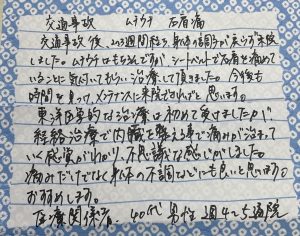 交通事故 ムチウチ 左肩痛
交通事故後、2~3週間経ち、身体の調子が戻らず来院
しました。ムチウチはもちろんですが、シートベルトで左肩を痛めて
いることに気付いてもらい治療して頂きました。今後も
時間を見つけ、メンテナンスに来院できればと思います。
東洋医学的な治療は初めて受けましたが、
経絡治療で内臓を整える事で痛みが治まって
いく感覚がわかり、不思議な感じがしました。
痛みだけでなく身体の不調などにも良いと思います。
おすすめします。
医療関係者 40代 男性 週4~5通院